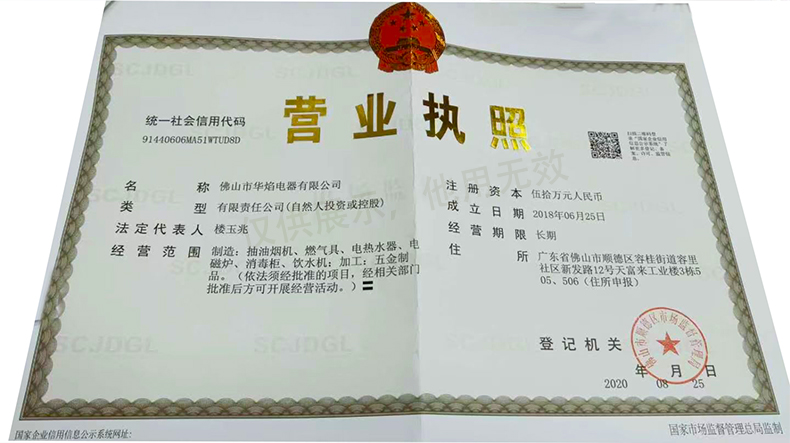 营业执照
统一社会信用代码
91440606MA51WTUD8D
名 称 佛山市华焰电器有限公司
类 型 有限责任公司(自然人投资或控股)
法定代表人 楼玉兆
经营范围 制造：抽油烟机、燃气具、电热水器、电
磁炉、消毒柜、饮水机；加工：五金制
品。（依法须经批准的项目，经相关部门
批准后方可开展经营活动。）
扫描二维码登
录“国家企业信用
信息公示系统”了
解更多登记、备
案、许可、监管信
息。
注册资本 伍拾万元人民币
成立日期 2018年06月25日
营业期限 长期
住 所 广东省佛山市顺德区容桂街道容里
社区新发路12号天富来工业楼3栋5
05、506（住所申报）
仅供展示，他用无效
登记机关
佛山市顺德区市场监督管理局
年 月 日
2020 08 25
SCJDGL
SCJDGL
SCJDGL
SCJDGL
国家企业信用信息公示系统网址:
国家市场监督管理总局监制